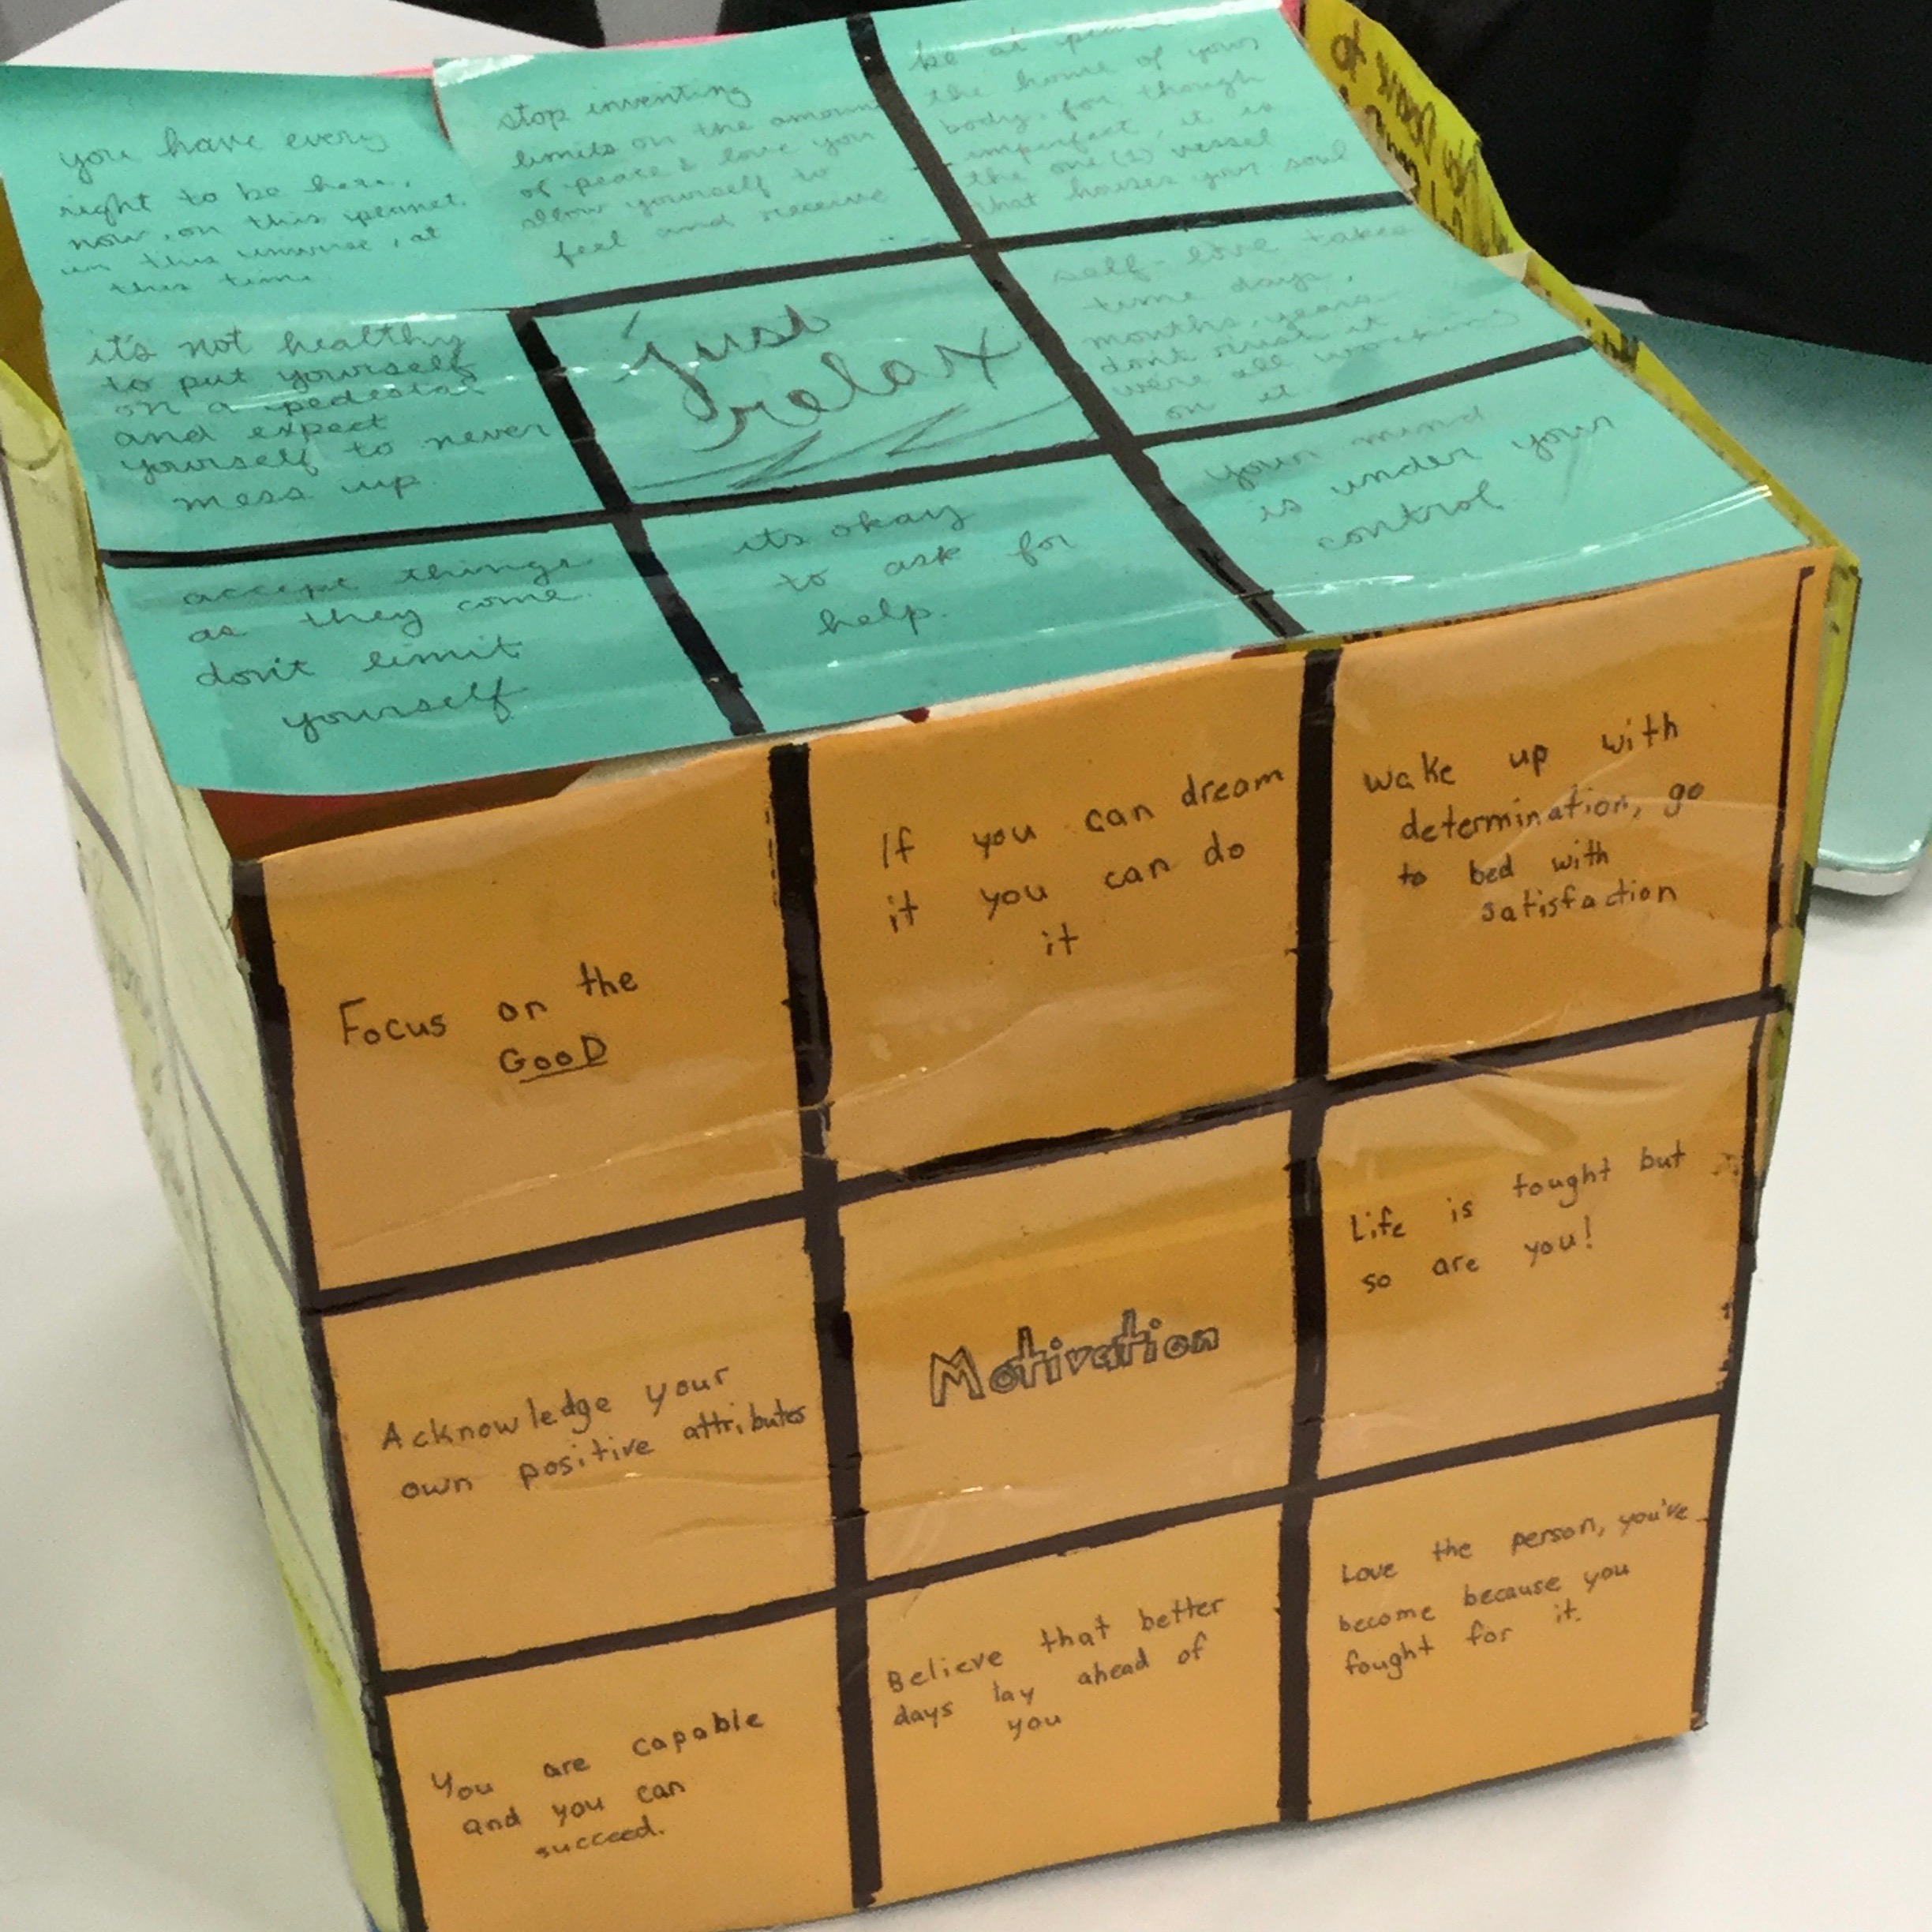 you have every
right to be here,
now, on this planet,
in this universe, at
this time
stop inventing
limits on the amount
of peace & love you
allow yourself to
feel and receive
be at
the home of your
body, for though
imperfect, it is
the one (1) vessel
that houses your soul
it's not healthy
to put yourself
on a pedestal
and expect
yourself to never
mess up.
just
relax
self-love takes
time days,
months, years
don't rush it
we're all working
on it.
accept things
as they come.
don't limit
yourself
it's okay
to ask for
help.
your mind
is under your
control
Focus on the
GOOD
If you can dream
it you can do
it
Wake up with
determination, go
to bed with
satisfaction
Acknowledge your
own positive attributes
Motivation
Life is tought but
so are you!
You are capable
and you can
succeed.
Believe that better
days lay ahead of
you
Love the person, you've
become because you
fought for it.